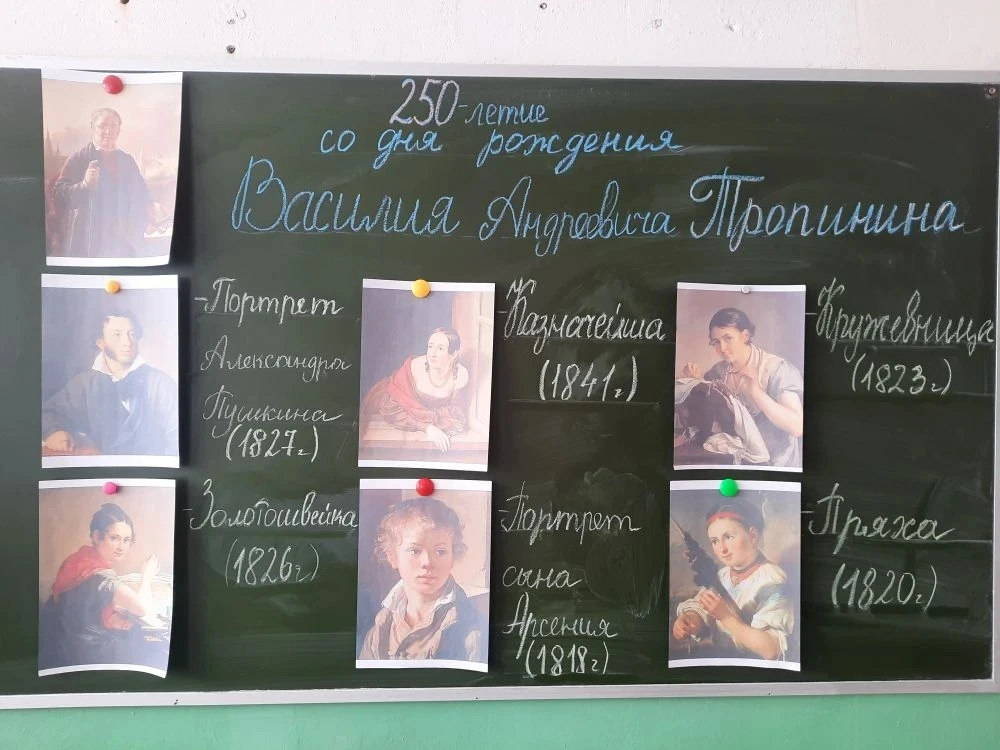 250-летие
со дня рождения
Василия Андреевича Тропинина
-Портрет
Александра
Пушкина
(1827г)
-Казначейша
(1841г)
-Кружевница
(1823г)
-Золотошвейка
(1826г)
-Портрет
сына
Арсения
(1818г)
-Пряха
(1820г)